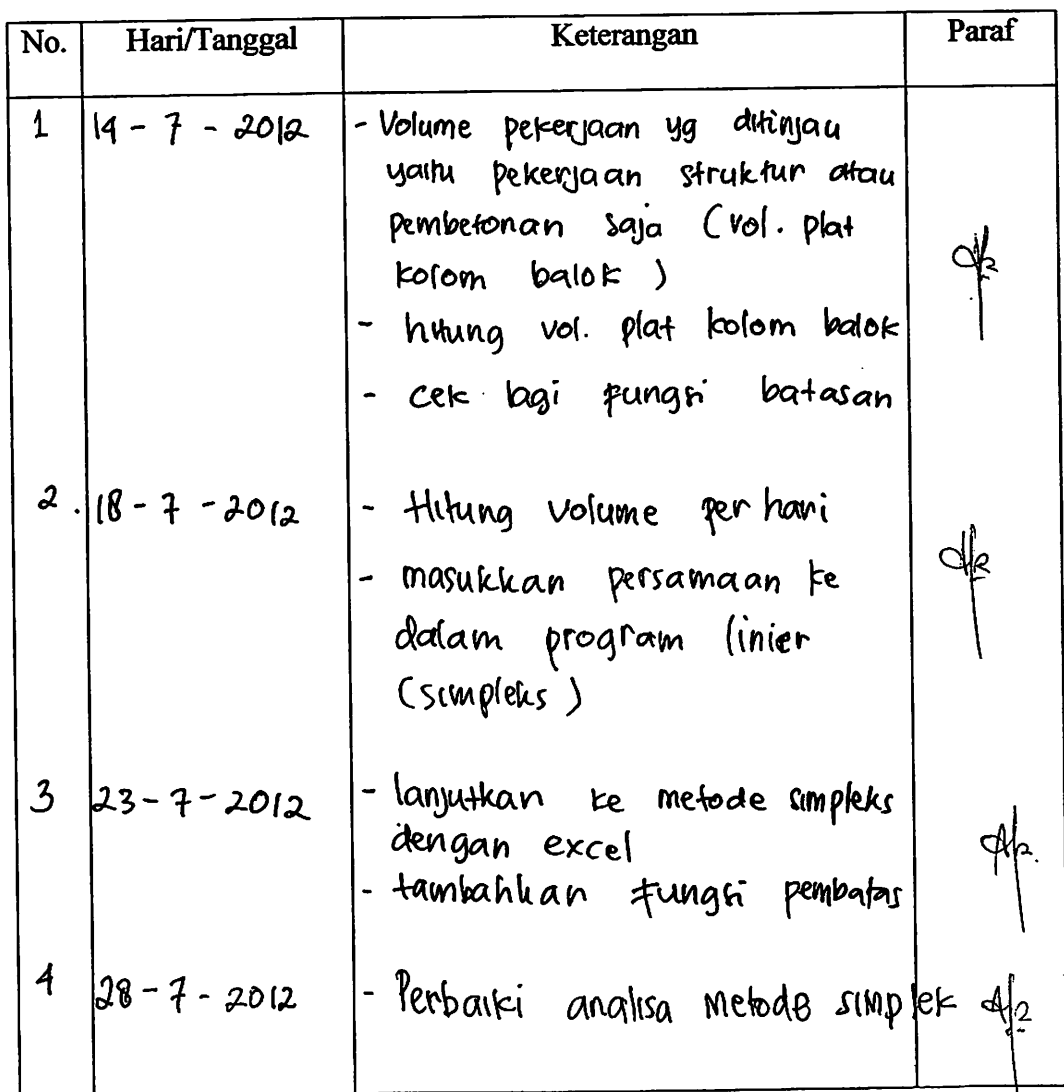 No. Hari/Tanggal Keterangan Paraf
1 14 - 7 - 2012 - Volume pekerjaan yg ditinjau
yaitu pekerjaan struktur atau
pembetonan saja (vol. plat
kolom balok )
- hitung vol. plat kolom balok
- cek bagi fungsi batasan
2. 18 - 7 - 2012 - Hitung volume per hari
- masukkan persamaan ke
dalam program linier
(simpleks )
3 23 - 7 - 2012 - lanjutkan ke metode simpleks
dengan excel
- tambahkan fungsi pembatas
4 28 - 7 - 2012 - Perbaiki analisa metode simplek